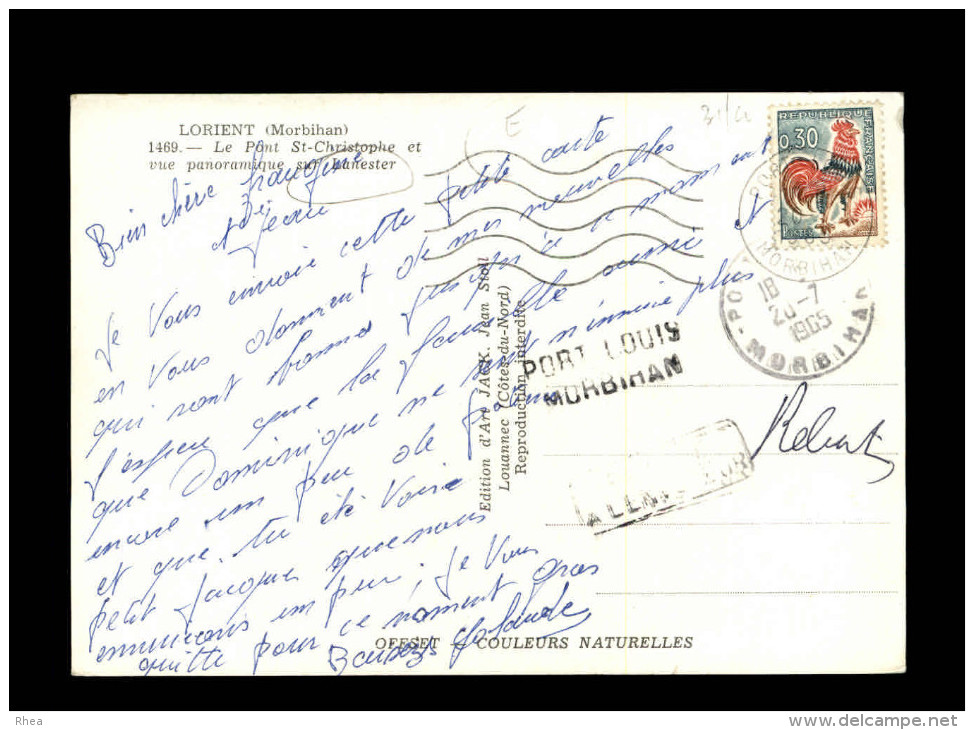 LORIENT (Morbihan)
1469. — Le Pont St-Christophe et
vue panoramique sur Lanester
E
REPUBLIQUE FRANÇAISE
0,30
POSTES
MORBIHAN
18
20-7
1965
MORBIHAN
PORT LOUIS
MORBIHAN
Edition d'Art JACK. Jean Stoll
Louannec (Côtes-du-Nord)
Reproduction interdite
Bien chère
et Jean
Je Vous envoie cette petite carte
en Vous donnant de mes nouvelles
qui sont bonne jusqu'à ce moment
J'espère que la famille aussi et
que Dominique ne plus
encore un peu de
et que tu été Voire
petit Jacques que nous
ennuions un peu, Je Vous
quitte pour ce moment gros
Baisers Yolande
OFFSET — COULEURS NATURELLES
Rhea
delcampe.net